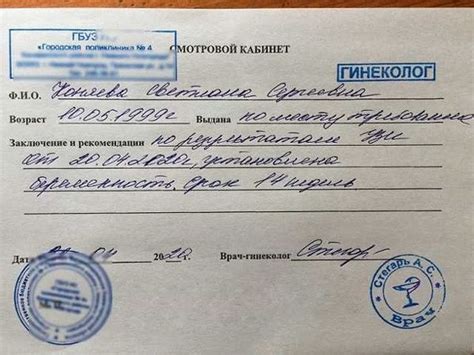 ГБУЗ
«Городская поликлиника № 4
СМОТРОВОЙ КАБИНЕТ
ГИНЕКОЛОГ
Ф.И.О. Коняева Светлана Сергеевна
Возраст 10.05.1999г Выдана по месту требования
Заключение и рекомендации по результатам УЗИ
от 20.04.2020г, установлена
беременность, срок 14 недель
Дата 04 2020 Врач-гинеколог Стегарь
Стегарь А.С.
Врач